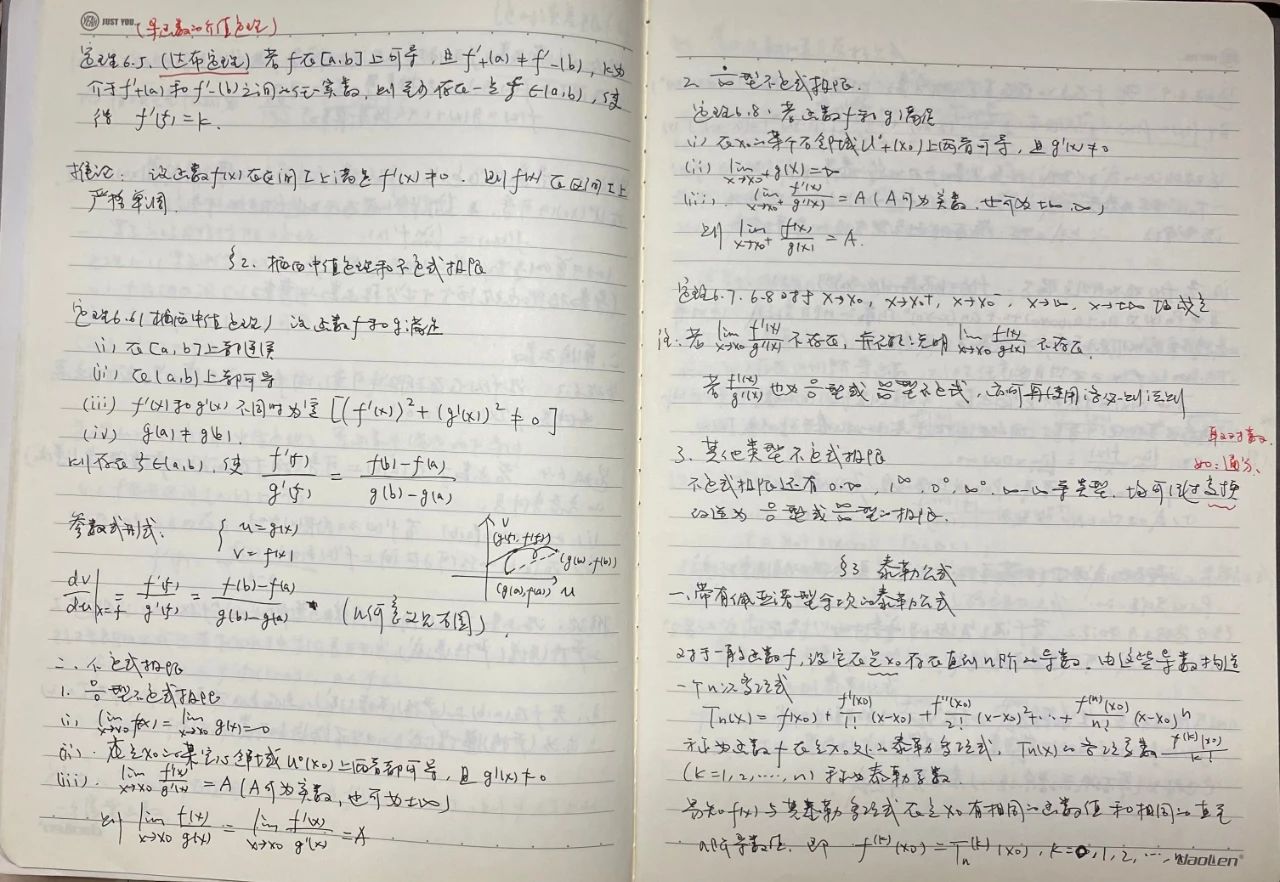 JUST YOU
(导函数的介值定理)
定理6.5.(达布定理) 若f在[a,b]上可导,且f'₊(a)≠f'₋(b), k为
介于f'₊(a)和f'₋(b)之间的任一实数,则至少存在一点ξ∈(a,b),使
得 f'(ξ)=k.
推论: 设函数f(x)在区间I上满足f'(x)≠0. 则f(x)在区间I上
严格单调.
§2. 柯西中值定理和不定式极限
定理6.6(柯西中值定理) 设函数f和g满足
(i) 在[a,b]上都连续
(ii) 在(a,b)上都可导
(iii) f'(x)和g'(x)不同时为零 [(f'(x))²+(g'(x))²≠0]
(iv) g(a)≠g(b).
则存在ξ∈(a,b), 使 f'(ξ)/g'(ξ) = (f(b)-f(a))/(g(b)-g(a))
参数式形式. { u=g(x) v=f(x)
dv/du|x=ξ = f'(ξ)/g'(ξ) = (f(b)-f(a))/(g(b)-g(a))
v
(g(ξ),f(ξ))
(g(b),f(b))
(g(a),f(a)) u
二、不定式极限
1. 0/0型不定式极限
(i) lim x→x₀ f(x)=lim x→x₀ g(x)=0
(ii). 在点x₀的某空心邻域U°(x₀)上两者都可导,且g'(x)≠0
(iii). lim x→x₀ f'(x)/g'(x) = A (A可为实数,也可为±∞,∞)
则 lim x→x₀ f(x)/g(x) = lim x→x₀ f'(x)/g'(x) = A
2. ∞/∞型不定式极限.
定理6.8. 若函数f和g满足
(i) 在x₀的某个右邻域U°₊(x₀)上两者可导,且g'(x)≠0
(ii) lim x→x₀⁺ g(x)=∞
(iii). lim x→x₀⁺ f'(x)/g'(x) = A (A可为实数,也可为±∞,∞)
则 lim x→x₀⁺ f(x)/g(x) = A.
定理6.7. 6.8对于x→x₀, x→x₀⁺, x→x₀⁻, x→∞, x→±∞均成立
注: 若 lim x→x₀ f'(x)/g'(x) 不存在,并不能说明 lim x→x₀ f(x)/g(x) 不存在.
若 f'(x)/g'(x) 也为0/0型或∞/∞型不定式,亦可再使用洛必达法则
取对数.
如:通分.
3. 其他类型不定式极限
不定式极限还有0·∞, 1^∞, 0⁰, ∞⁰, ∞-∞等类型, 均可经过变换
改造为0/0型或∞/∞型的极限.
§3 泰勒公式
一、带有佩亚诺型余项的泰勒公式
对于一般函数f,设它在点x₀存在直到n阶的导数. 由这些导数构造
一个n次多项式
Tₙ(x) = f(x₀) + f'(x₀)/1! (x-x₀) + f''(x₀)/2! (x-x₀)² +…+ f⁽ⁿ⁾(x₀)/n! (x-x₀)ⁿ
称为函数f在点x₀处的泰勒多项式, Tₙ(x)的各项系数 f⁽ᵏ⁾(x₀)/k!
(k=1,2,…,n) 称为泰勒系数.
易知f(x)与其泰勒多项式在点x₀有相同的函数值和相同的直至
n阶导数值. 即 f⁽ᵏ⁾(x₀)=Tₙ⁽ᵏ⁾(x₀), k=0,1,2,…,n
daolen